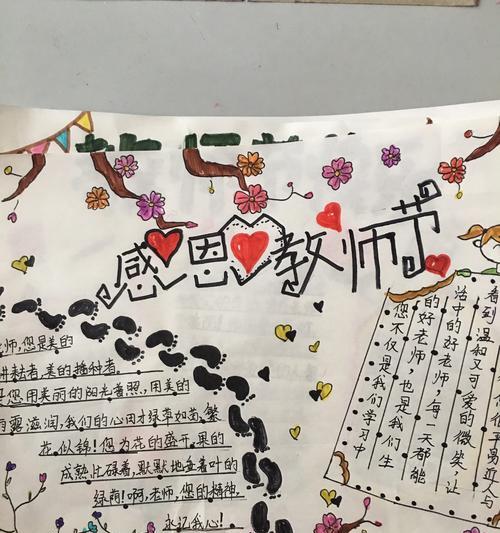 感恩教师节
师,您是美的
耕耘者,美的播种者。
是您用美丽的阳光普照,用美的
雨露滋润,我们的心田才绿草如茵,繁
花似锦!您为花的盛开,果的
成熟忙碌着,默默地垂着叶的
绿荫!啊,老师,您的精神,
永记我心!
您不仅是我们学习中
的好老师,也是我们生
活中的好老师,每一天都能
看到温和又可爱的微笑,让
易近人与